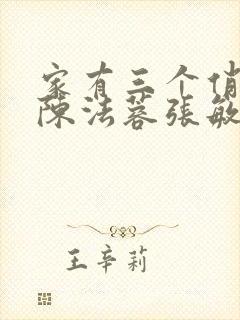 家有三个俏
陈法蓉张敏
王辛莉